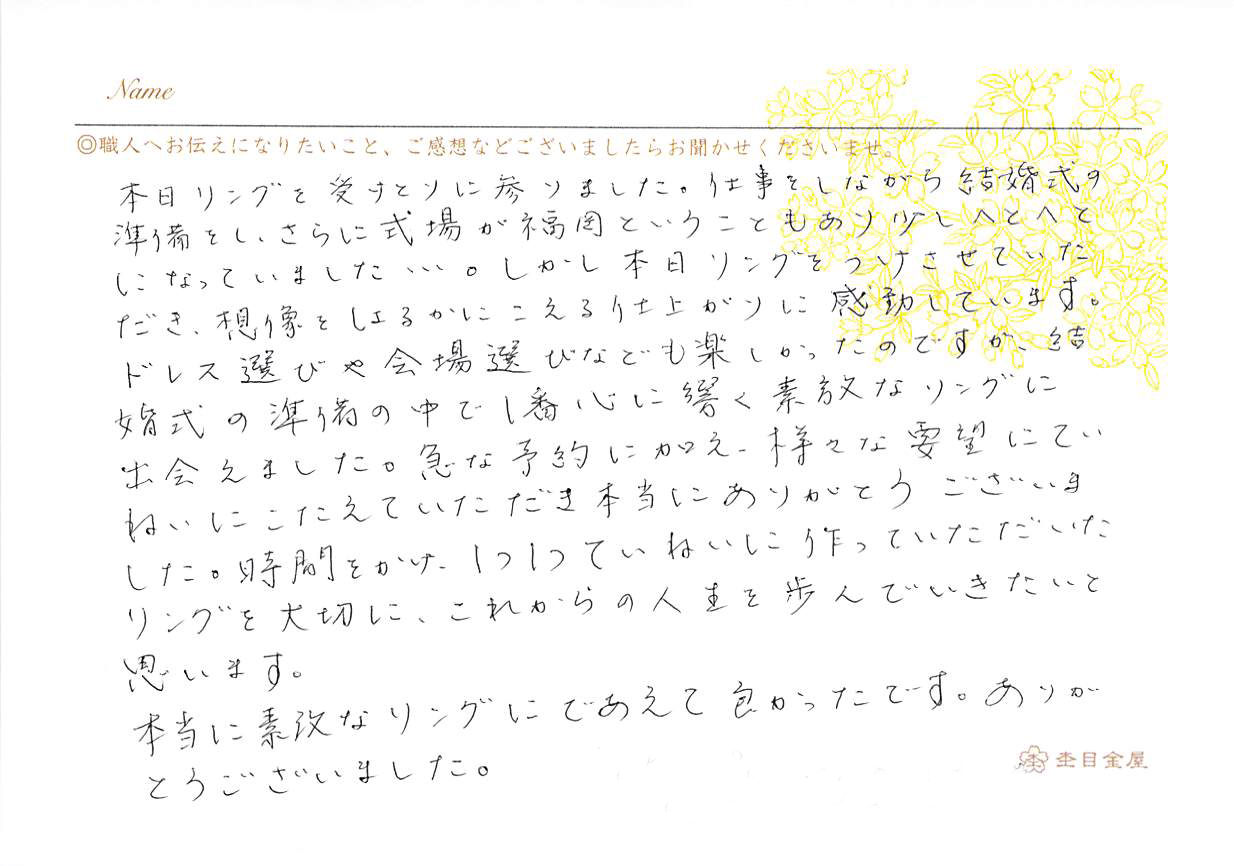 Name
◎職人へお伝えになりたいこと、ご感想などございましたらお聞かせくださいませ。
本日リングを受けとりに参りました。仕事をしながら結婚式の
準備をし、さらに式場が福岡ということもあり少しへとへと
になっていました…。しかし本日リングをつけさせていた
だき、想像をはるかにこえる仕上がりに感動しています。
ドレス選びや会場選びなども楽しかったのですが、結
婚式の準備の中で1番心に響く素敵なリングに
出会えました。急な予約に加え、様々な要望にてい
ねいにこたえていただき本当にありがとうございま
した。時間をかけ、1つ1つていねいに作っていただいた
リングを大切に、これからの人生を歩んでいきたいと
思います。
本当に素敵なリングにであえて良かったです。ありが
とうございました。
杢目金屋